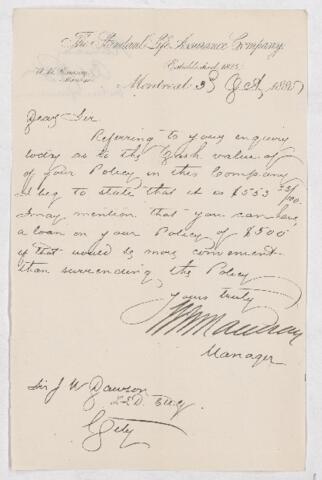 The Standard Life Assurance Company.
Established 1825.
W. M. Ramsay
Manager
Montreal 3 Oct 1895
Dear Sir
Referring to your enquiry
today as to the Cash value of
of your Policy in this Company
I beg to state that it is $553
I may mention that you can have
a loan on your Policy of $500
if that would be more convenient
than surrendering the Policy
Yours truly
W M Ramsay
Manager
Sir J W Dawson
L.L.D.
City